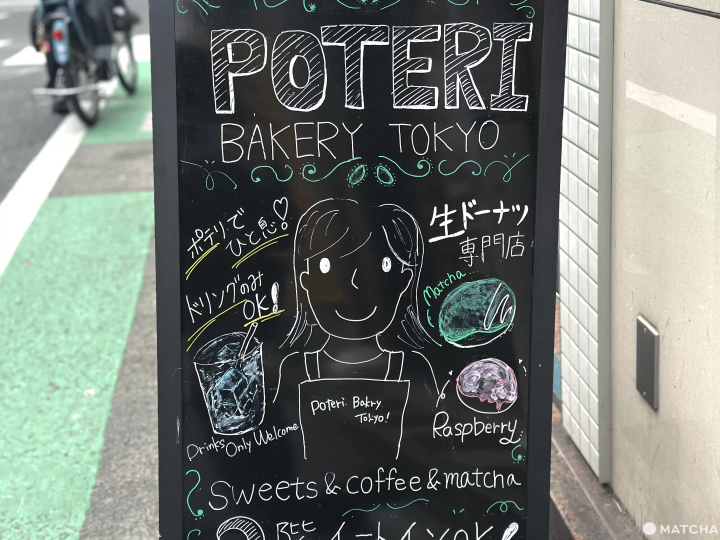 POTERI
BAKERY TOKYO
ポテリで
ひと息!
生ドーナツ
専門店
ドリンクのみ
OK!
Matcha
Poteri Bakry
Tokyo!
Raspberry
Drinks Only Welcome
Sweets & coffee & matcha
イートインOK!
MATCHA